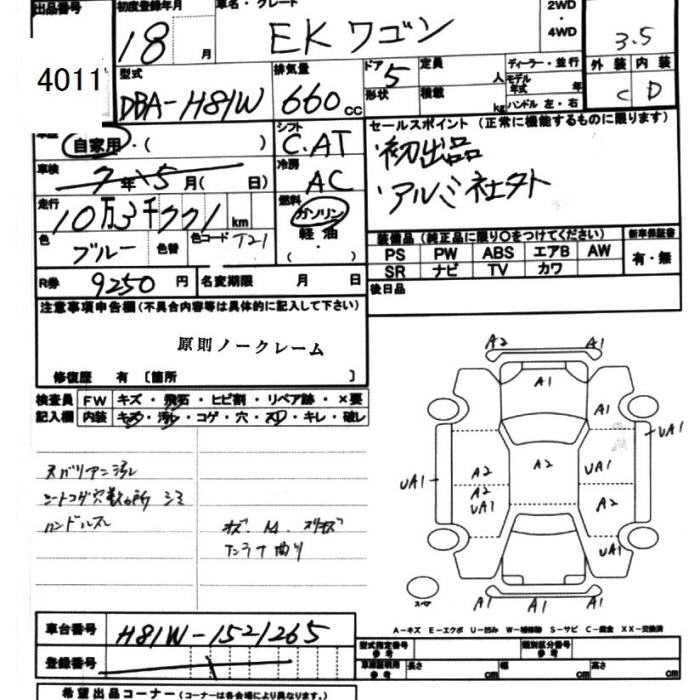 出品番号 初度登録年月 車名・グレード 2WD・4WD
4011 18 月 EK ワゴン 3.5
型式 排気量 ドア 定員 ディーラー・並行 外装 内装
DBA-H81W 660cc 5 人 モデル年式 年 C D
形状 積載 kg ハンドル 左・右
自家用・( ) シフト C.AT セールスポイント (正常に機能するものに限ります)
車検 7年 5月( 日) 冷房 AC 初出品
走行 10万3千771km 燃料 ガソリン 軽油 ( ・ ) ・アルミ社外
色 ブルー 色替 色コード T21
装備品 (純正品に限り○をつけてください) 新車保証書
PS PW ABS エアB AW 有・無
SR ナビ TV カワ
R券 9250円 名変期限 月 日 後日品
注意事項申告欄(不具合内容等は具体的に記入して下さい)
原則ノークレーム
修復歴 有 〔箇所 〕
検査員 FW キズ・飛石・ヒビ割・リペア跡・×要
記入欄 内装 キズ・汚レ・コゲ・穴・スレ・キレ・破レ
ハンドルスレ
A2 A1
A1
A1
UA1
A2 A2 UA1
UA1
A2
UA1 A2
UA1
スペア
A1 A1 A1
A-キズ E-エクボ U-凹み W-補修跡 S-サビ C-腐食 XX-交換済
車台番号 H81W-1521265
型式指定番号 参考 類別区分番号 参考
登録番号
車庫証明用 参考 長さ cm 幅 cm 高さ cm
希望出品コーナー(コーナーは各会場により異なります。)